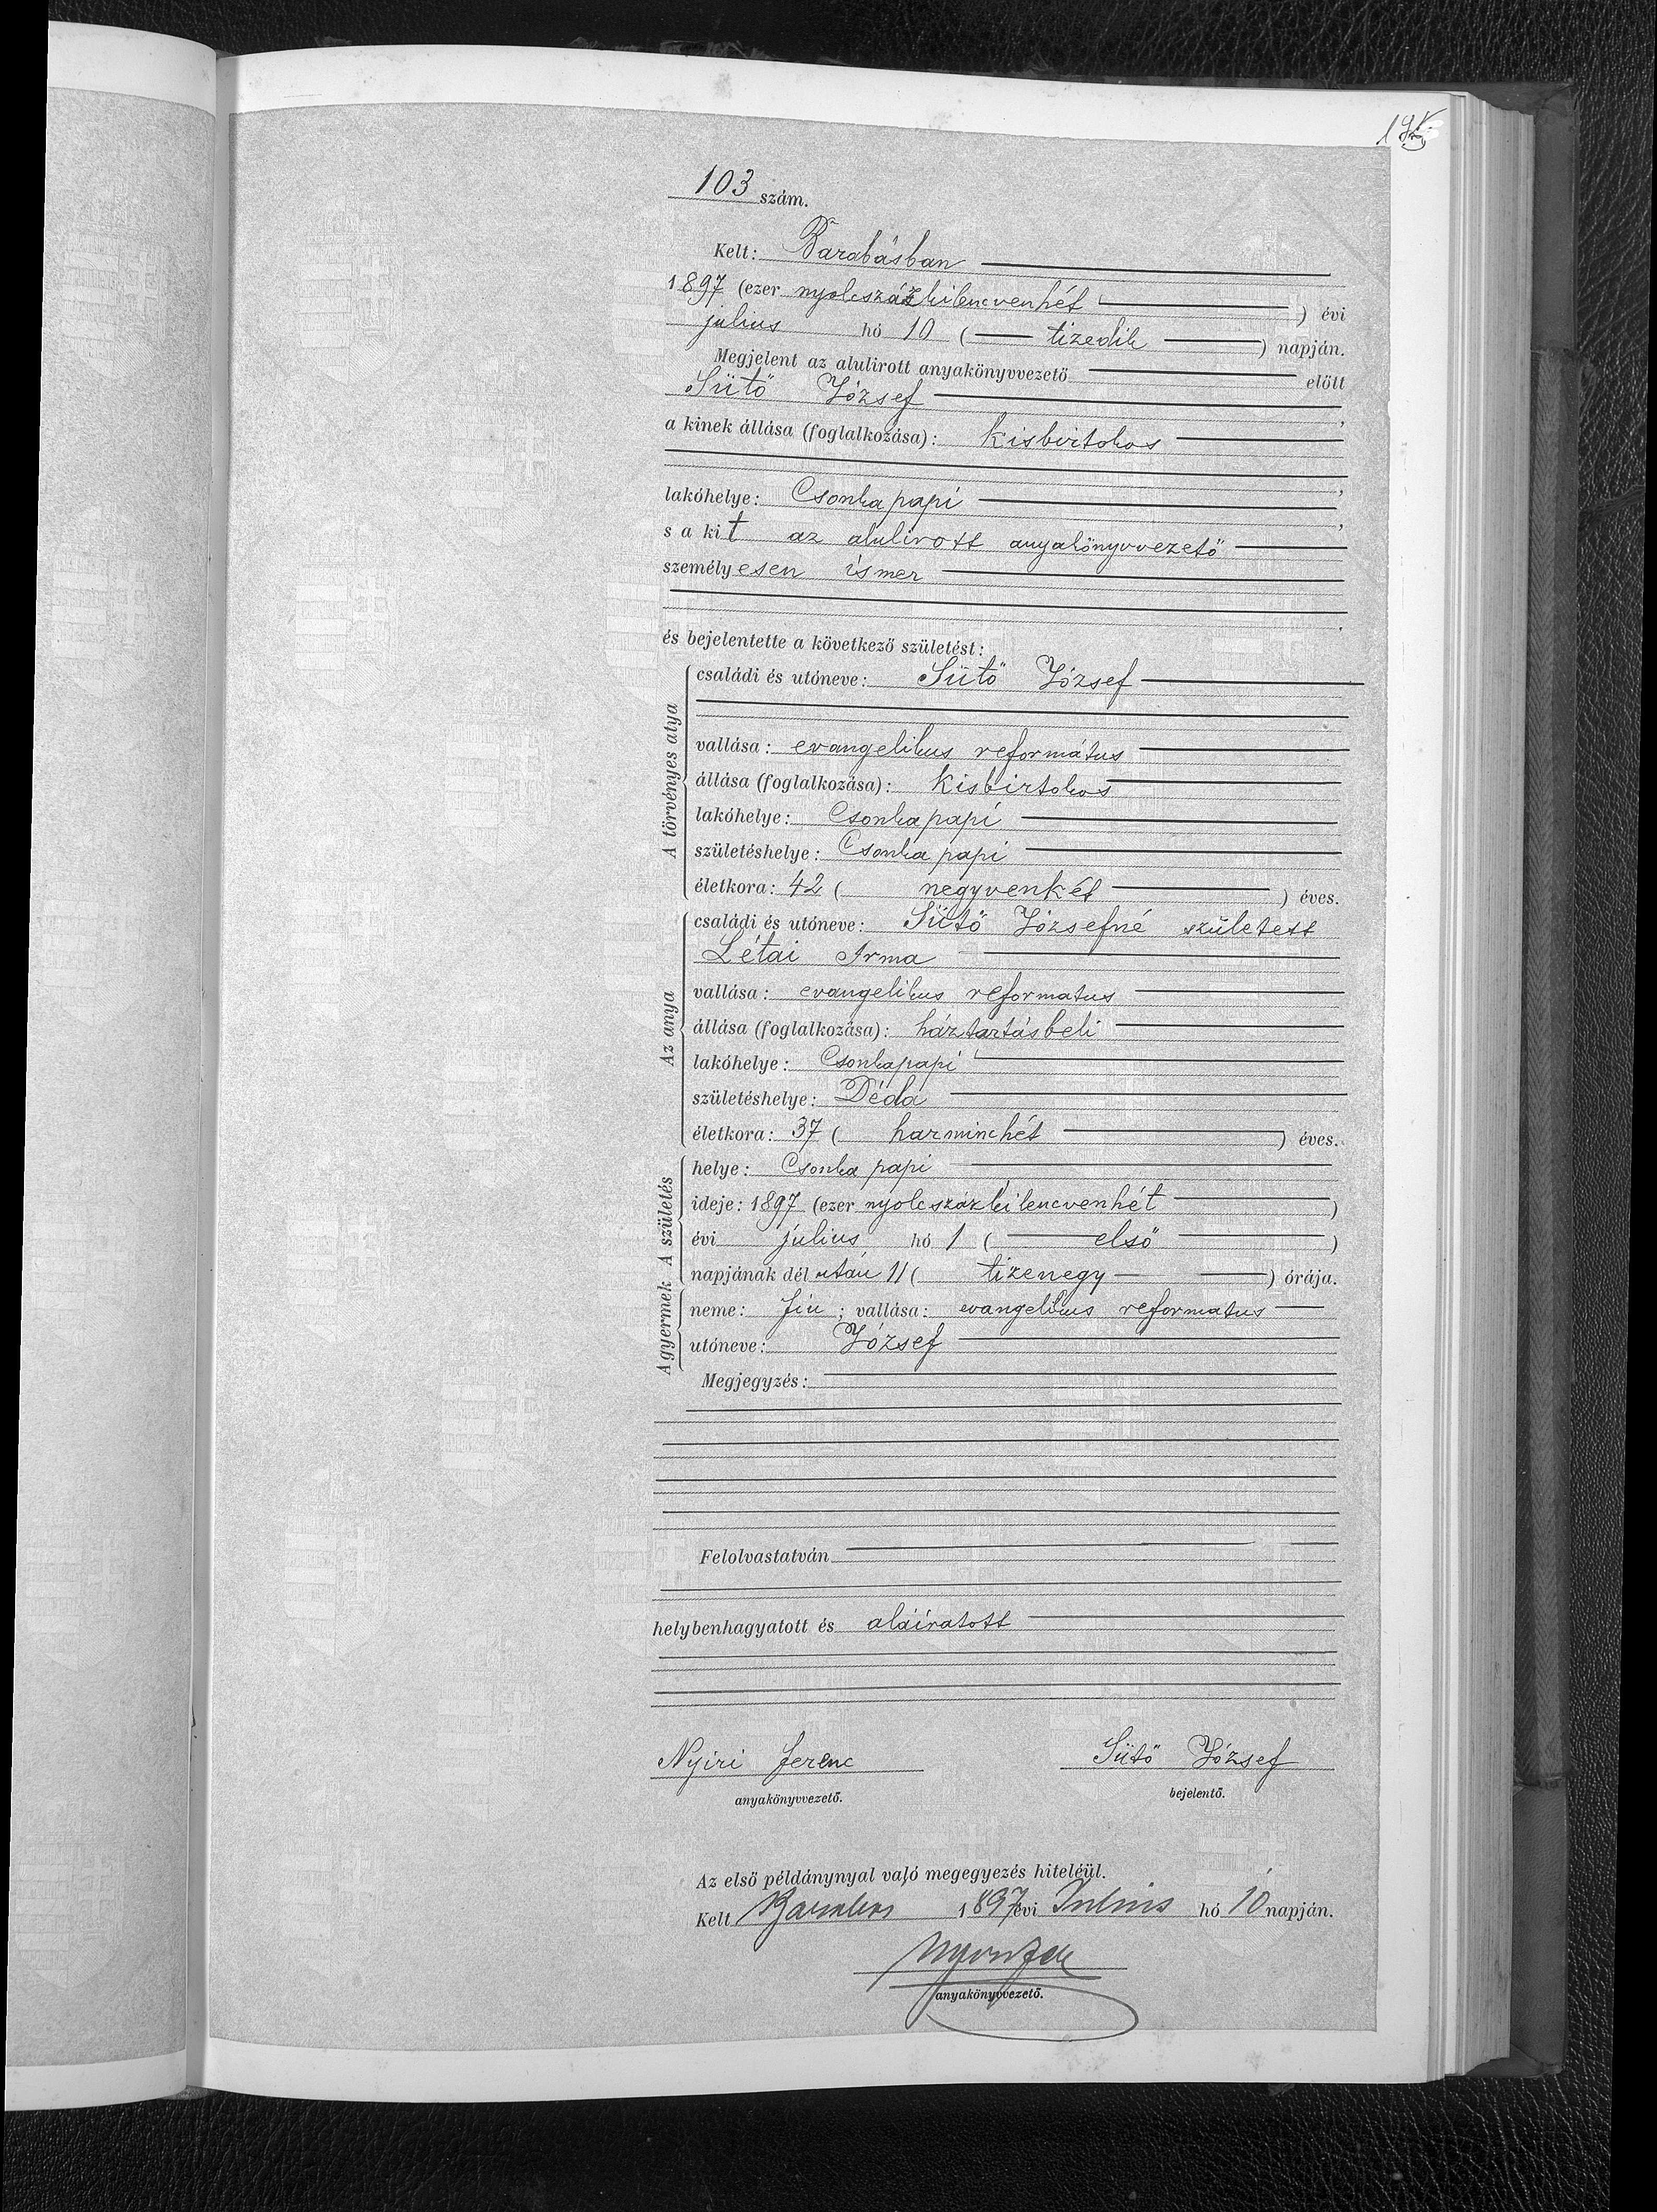 103 szám.
Kelt: Barabásban
1897 (ezer nyolcszázkilencvenhét) évi
julius hó 10 (tizedik) napján.
Megjelent az alulirott anyakönyvvezető előtt
Sütő József,
a kinek állása (foglalkozása): kisbirtokos,
lakóhelye: Csonka papi,
s a kit az alulirott anyakönyvvezető
személyesen ismer.
és bejelentette a következő születést:
A törvényes atya
családi és utóneve: Sütő József
vallása: evangelikus református
állása (foglalkozása): kisbirtokos
lakóhelye: Csonkapapi
születéshelye: Csonka papi
életkora: 42 (negyvenkét) éves.
Az anya
családi és utóneve: Sütő Józsefné született
Létai Irma
vallása: evangelikus reformatus
állása (foglalkozása): háztartásbeli
lakóhelye: Csonkapapi
születéshelye: Déda
életkora: 37 (harminchét) éves.
A születés
helye: Csonka papi
ideje: 1897 (ezer nyolcszázkilencvenhét)
évi július hó 1 (első)
napjának dél után 11 (tizenegy) órája.
A gyermek
neme: fiu; vallása: evangelikus reformatus
utóneve: József
Megjegyzés:
Felolvastatván
helybenhagyatott és aláiratott
Nyiri Ferenc
Sütő József
anyakönyvvezető.
bejelentő.
Az első példánynyal való megegyezés hiteléül.
Kelt 1897 évi Julius hó 10 napján.
anyakönyvvezető.